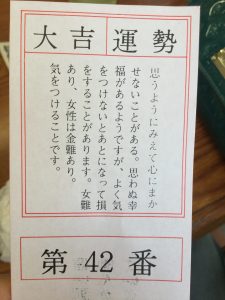 大吉運勢
思うようにみえて心にまか
せないことがある。思わぬ幸
福があるようですが、よく気
をつけないとあとになって損
をすることがあります。女難
あり、女性は金難あり。
気をつけることです。
第42番